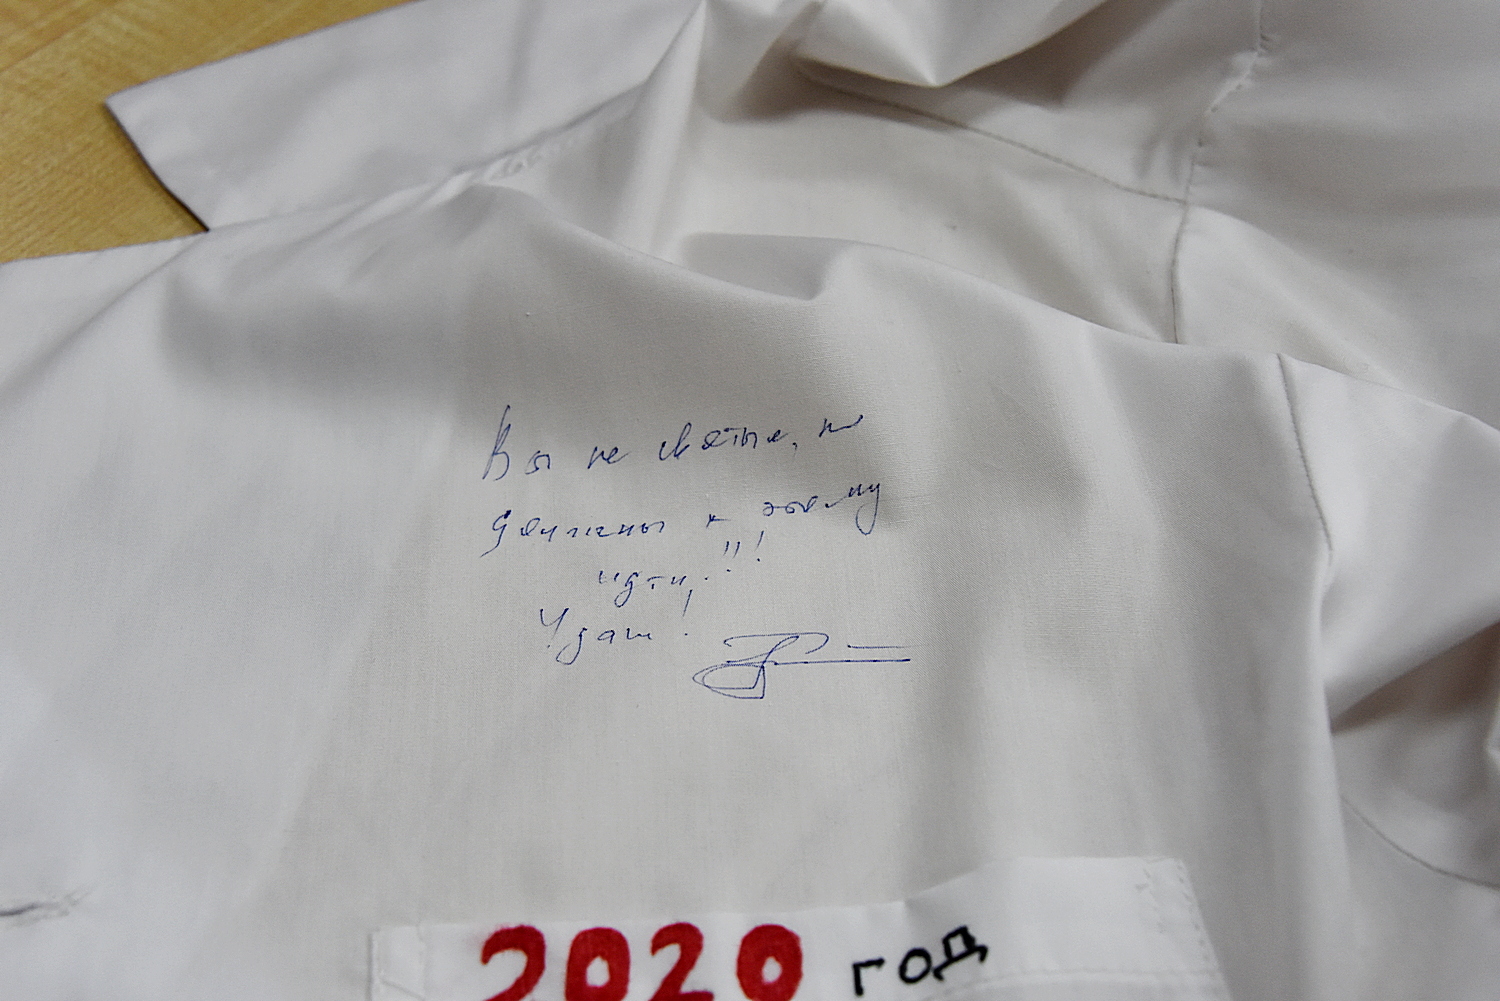 Вы не святые, но
должны к этому
идти!!!
Удачи!
2020 год